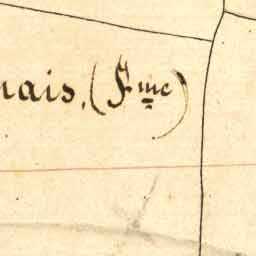 nais, (Fme)